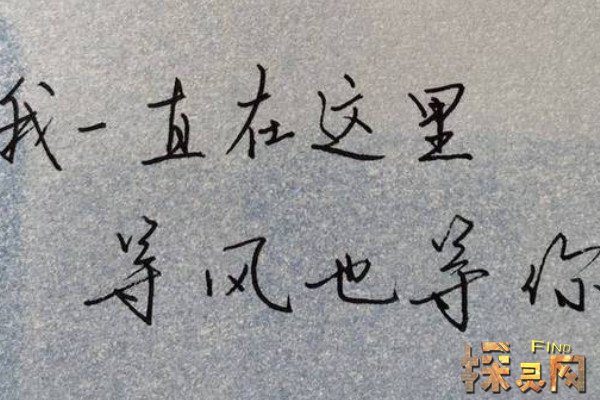 我一直在这里
等风也等你
FIND
探灵网